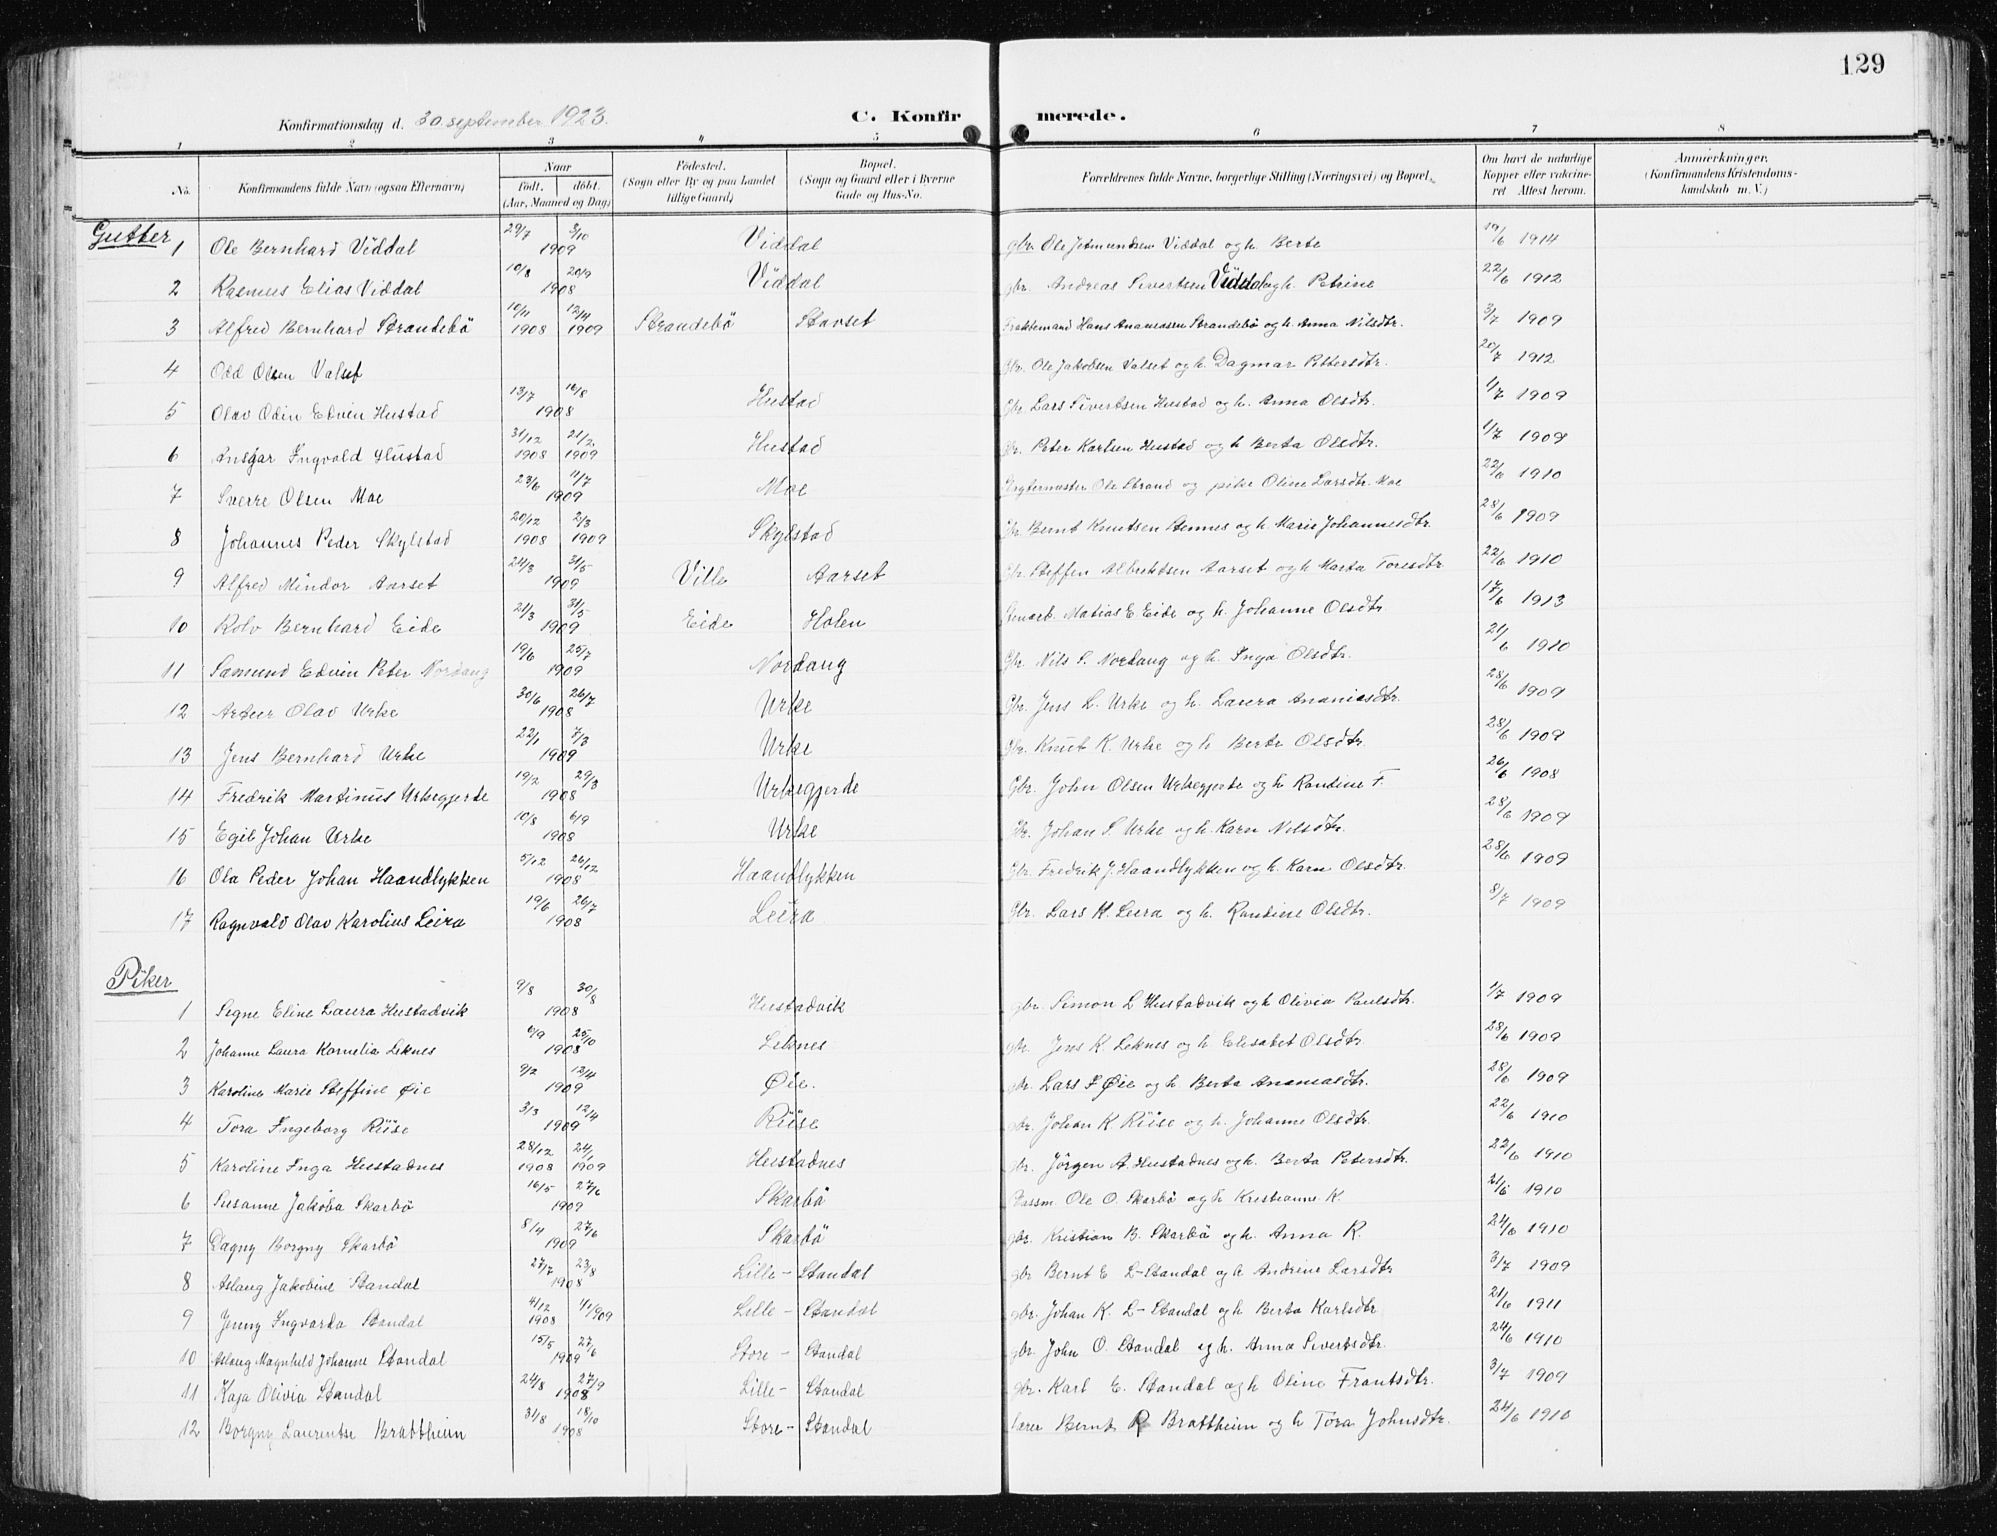 129
Konfirmationsdag d. 30. september 1923. C. Konfirmerede.
1 2 3 4 5 6 7 8
No. Konfirmandens fulde Navn (ogsaa Efternavn) Naar født. døbt. (Aar, Maaned og Dag) Födested. (Sogn eller By og paa Landet tillige Gaard) Bopæl. (Sogn og Gaard eller i Byerne Gade og Hus-No. Forældrenes fulde Navne, borgerlige Stilling (Næringsvei) og Bopæl. Om havt de naturlige Kopper eller vakcineret Attest herom. Anmærkninger. (Konfirmandens Kristendomskundskab m. V.)
Gutter
1 Ole Bernhard Viddal 29/7 3/10 1909 Viddal gbr. Ole Jetmundsen Viddal og h. Berte 19/6 1914
2 Rasmus Elias Viddal 10/8 20/9 1908 Viddal gbr. Andreas Sivertsen Viddal og h. Petrine 22/6 1912
3 Alfred Bernhard Strandebö 10/11 1908 12/4 1909 Strandebö Stavset Hans Ananiassen Strandebö og h. Anna Nilsdtr. 3/7 1909
4 Odd Olsen Valset Gbr. Ole Jakobsen Valset og h. Dagmar Pettersdtr. 20/7 1912
5 Olav Odin Edvin Hustad 13/7 16/8 1908 Hustad Gbr Lars Sivertsen Hustad og h. Anna Olsdtr. 1/7 1909
6 Ansgar Ingvald Hustad 31/12 1908 21/2 1909 Hustad Gbr. Peter Karlsen Hustad og h Berta Olsdtr. 1/7 1909
7 Sverre Olsen Moe 23/6 11/7 1909 Moe Ole Strand og pike Oline Larsdtr. Moe 22/6 1910
8 Johannes Peder Skylstad 20/12 1908 2/3 1909 Skylstad Gbr Bernt Knutsen Stennes og h. Marie Johannesdtr. 28/6 1909
9 Alfred Mindor Aarset 24/3 31/5 1909 Ville Aarset Gbr Steffen Albriktsen Aarset og h Marta Toresdtr 22/6 1910
10 Rolv Bernhard Eide 21/3 31/5 1909 Eide Holen Matias E Eide og h. Johanne Olsdtr. 17/6 1913
11 Sæmund Edvin Peter Nordang 19/6 25/7 1909 Nordang Gbr Nils S. Nordang og h. Inga Olsdtr. 21/6 1910
12 Artur Olav Urke 30/6 26/7 1908 Urke Gbr. Jens L. Urke og h. Laura Ananiasdtr. 28/6 1909
13 Jens Bernhard Urke 22/1 7/3 1909 Urke Gbr. Knut K. Urke og h Berte Olsdtr. 28/6 1909
14 Fredrik Martinus Urkegjerde 19/2 29/3 1908 Urkegjerde Gbr. John Olsen Urkegjerde og h Randine F. 26/6 1908
15 Egil Johan Urke 10/8 6/9 1908 Urke Gbr. Johan S. Urke og h. Karn Nilsdtr. 28/6 1909
16 Ola Peder Johan Haandlykken 5/12 26/12 1908 Haandlykken Gbr. Fredrik J. Haandlykken og h. Karn Olsdtr. 28/6 1909
17 Ragnvald Olav Karolius Leira 19/6 26/7 1908 Leira Gbr. Lars K. Leira og h. Randine Olsdtr. 8/7 1909
Piker
1 Signe Eline Laura Hustadvik 9/8 30/8 1908 Hustadvik gbr. Simon L Hustadvik og h Olivia Paulsdtr. 1/7 1909
2 Johanne Laura Kornelia Leknes 6/9 25/10 1908 Leknes gbr. Jens K. Leknes og h Elisabet Olsdtr. 28/6 1909
3 Karoline Marie Steffine Øie 9/2 12/4 1909 Øie. gbr. Lars S Øie og h Berta Ananiasdtr. 28/6 1909
4 Tora Ingeborg Riise 3/3 12/4 1909 Riise gbr. Johan K Riise og h. Johanne Olsdtr. 22/6 1910
5 Karoline Inga Hustadnes 28/12 1908 24/1 1909 Hustadnes gbr. Jörgen A. Hustadnes og h. Berta Petersdtr. 22/6 1910
6 Susanne Jakoba Skarbö 16/5 27/6 1909 Skarbö Ole O. Skarbö og h Kristianne K. 21/6 1910
7 Dagny Borgny Skarbö 8/4 27/6 1909 Skarbö gbr. Kristian B. Skarbö og h. Anna R. 24/6 1910
8 Aslaug Jakobine Standal 27/7 23/8 1908 Lille - Standal gbr Bernt E L-Standal og h Andrine Larsdtr 3/7 1909
9 Jenny Ingvarda Standal 4/12 1908 1/1 1909 Lille - Standal gbr Johan K. L-Standal og h Berta Karlsdtr 21/6 1911
10 Aslaug Magnhild Johanne Standal 15/5 27/6 1909 Store - Standal gbr. John O. Standal og h. Anna Sivertsdtr. 24/6 1910
11 Kaja Olivia Standal 24/8 27/9 1908 Lille - Standal gbr. Karl E. Standal og h Oline Frantsdtr. 3/7 1909
12 Borgny Laurentse Brattheim 31/8 18/10 1908 Store - Standal Lærer Bernt R Brattheim og h Tora Johnsdtr. 24/6 1910